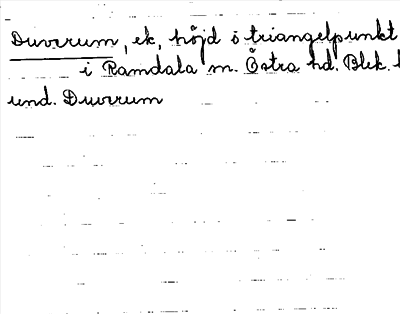 Duvrum, ek, höjd o triangelpunkt
i Ramdala sn. Östra hd. Blek.
und. Duvrum